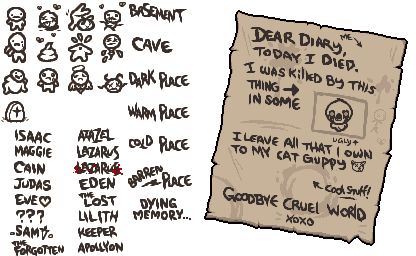 BASEMENT
CAVE
DARK PLACE
WARM PLACE
COLD PLACE
BARREN PLACE
DYING
MEMORY...
ISAAC
MAGGIE
CAIN
JUDAS
EVE
???
SAMPS
THE
FORGOTTEN
AZAZEL
LAZARUS
LAZARUS
EDEN
THE
LOST
LILITH
KEEPER
APOLLYON
DEAR DIARY,
ME
TODAY I DIED.
I WAS KILLED BY THIS
THING
IN SOME
UGLY
I LEAVE ALL THAT I OWN
TO MY CAT GUPPY
COOL STUFF!
GOODBYE CRUEL WORLD
XOXO